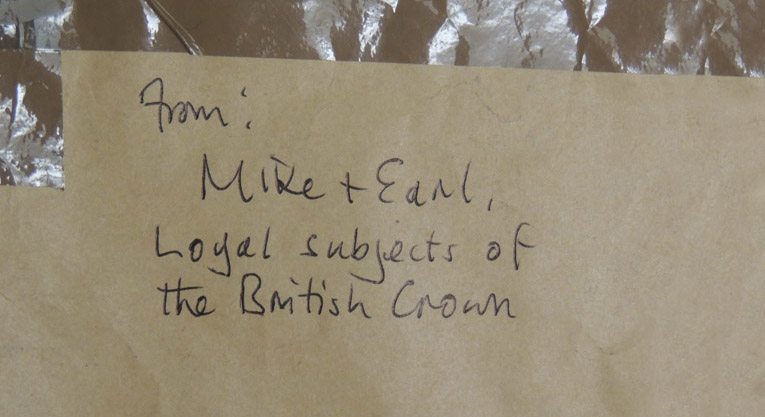 From:
Mike + Earl,
Loyal subjects of
the British Crown